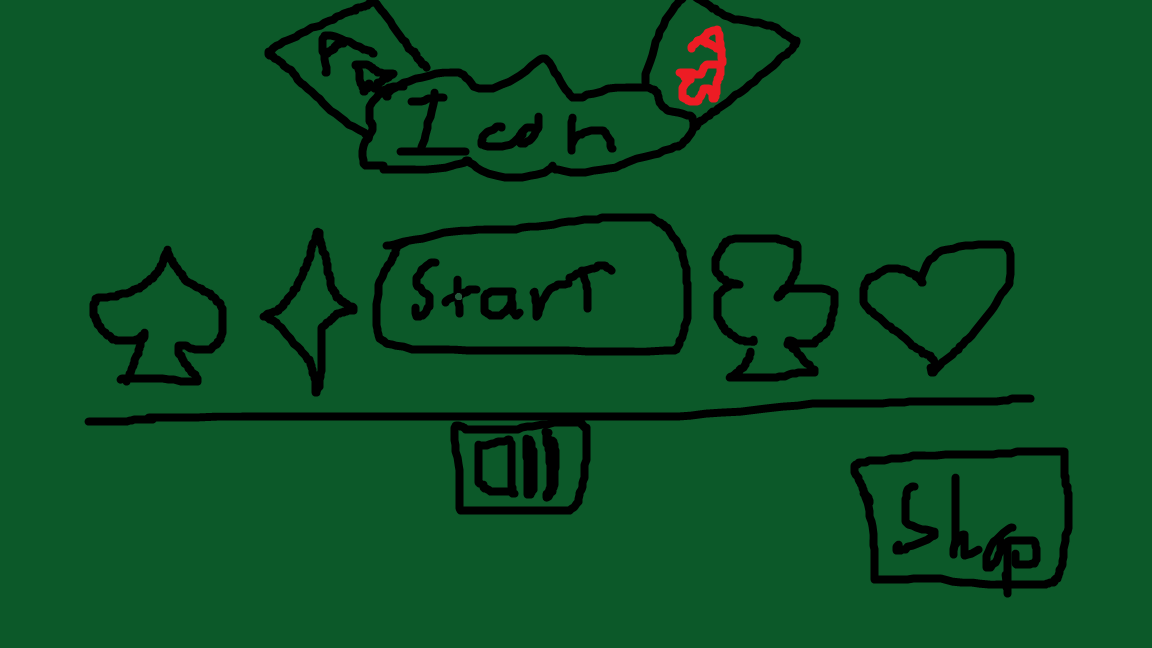 Icon
Start
Shop